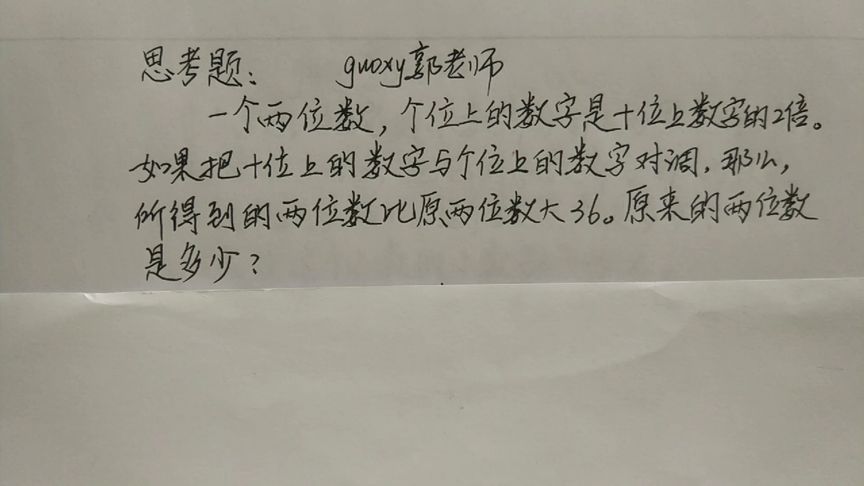 思考题： guoxy郭老师
一个两位数，个位上的数字是十位上数字的2倍。
如果把十位上的数字与个位上的数字对调，那么，
所得到的两位数比原两位数大36。原来的两位数
是多少？